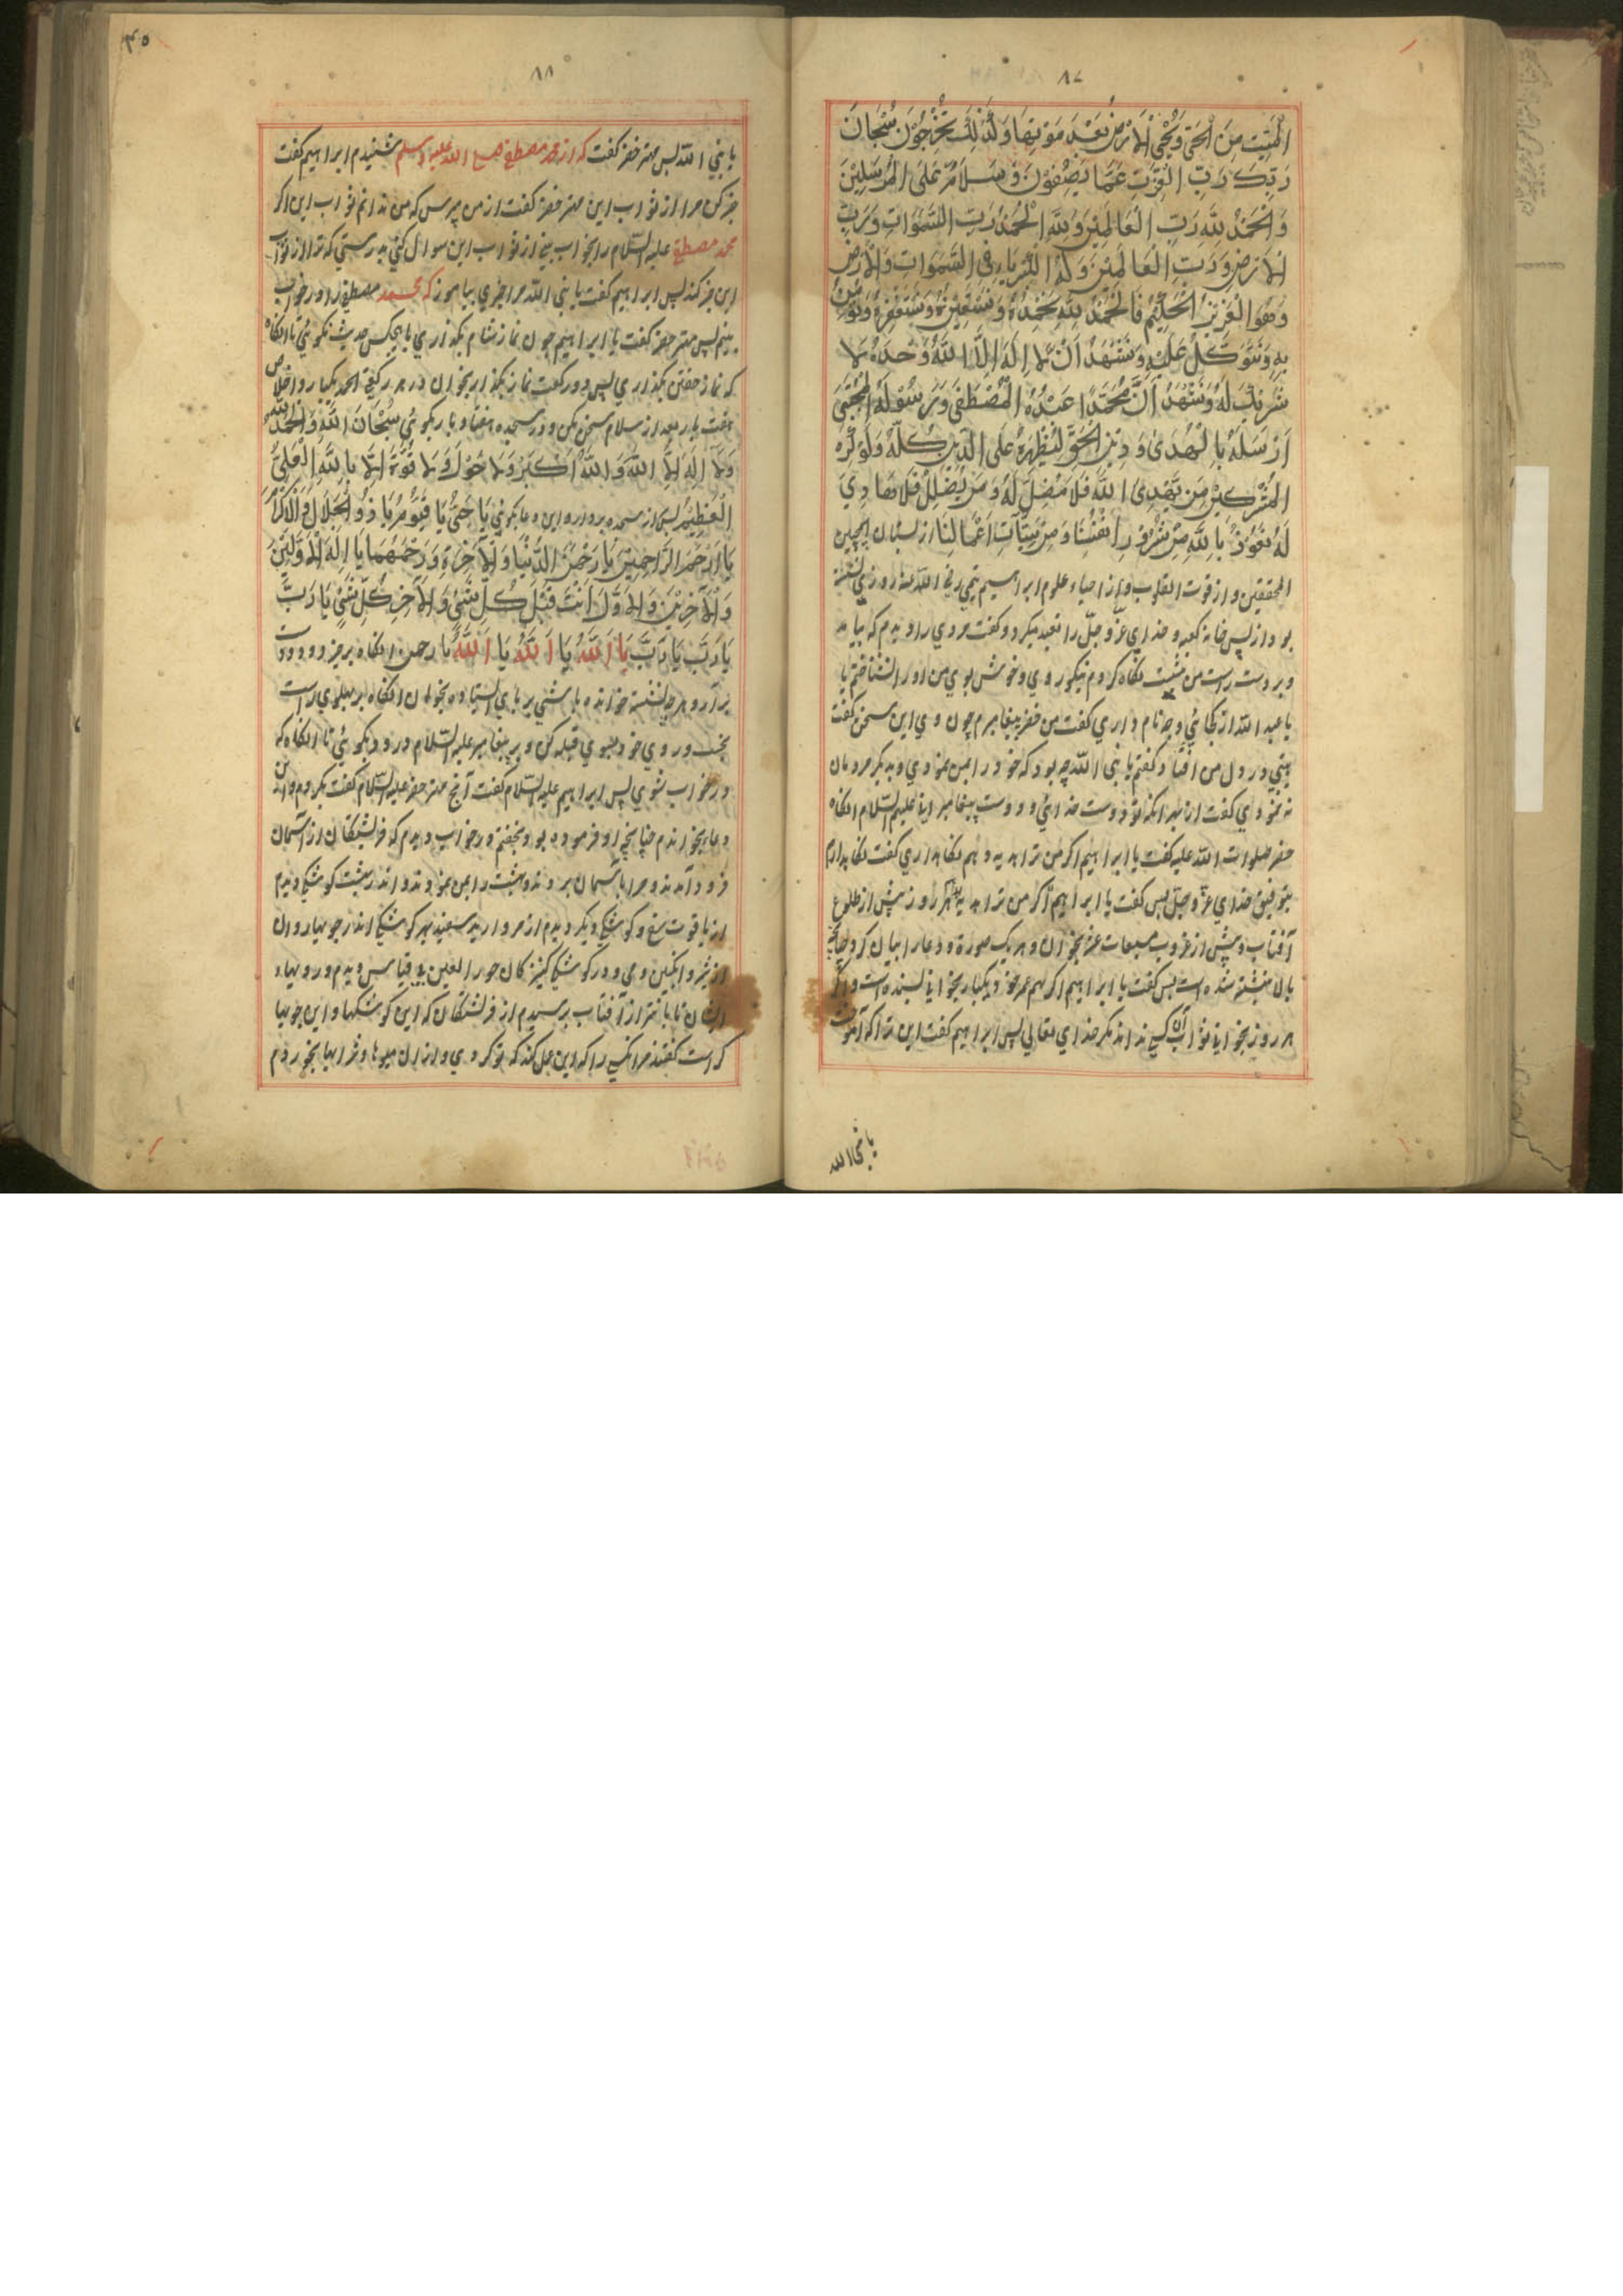 ۸۷
الْمَيِّتَ مِنَ الْحَيِّ وَيُحْيِ الْاَرْضَ بَعْدَ مَوْتِهَا وَكَذٰلِكَ تُخْرَجُوْنَ سُبْحَانَ
رَبِّكَ رَبِّ الْعِزَّتِ عَمَّا يَصِفُوْنَ وَ سَلَامٌ عَلَى الْمُرْسَلِيْنَ
وَالْحَمْدُ لِلّٰهِ رَبِّ الْعَالَمِيْنَ وَلِلّٰهِ الْحَمْدُ رَبِّ السَّمٰوَاتِ وَرَبِّ
الْاَرْضِ وَرَبِّ الْعَالَمِيْنَ وَلَهُ الْكِبْرِيَاءُ فِى السَّمٰوَاتِ وَالْاَرْضِ
وَهُوَ الْعَزِيْزُ الْحَكِيْمُ فَالْحَمْدُ لِلّٰهِ نَحْمَدُهُ وَنَسْتَعِيْنُهُ وَنَسْتَغْفِرُهُ وَنُؤْمِنُ
بِهِ وَنَتَوَكَّلُ عَلَيْهِ وَنَشْهَدُ اَنْ لَا اِلٰهَ اِلَّا اللّٰهُ وَحْدَهُ لَا
شَرِيْكَ لَهُ وَنَشْهَدُ اَنَّ مُحَمَّدًا عَبْدُهُ الْمُصْطَفٰى وَرَسُوْلُهُ الْمُجْتَبٰى
اَرْسَلَهُ بِالْهُدٰى وَ دِيْنِ الْحَقِّ لِيُظْهِرَهُ عَلَى الدِّيْنِ كُلِّهِ وَلَوْ كَرِهَ
الْمُشْرِكِيْنَ مَنْ يَهْدِىْ اللّٰهُ فَلَا مُضِلَّ لَهُ وَمَنْ يُضْلِلْ فَلَا هَادِيَ
لَهُ نَعُوْذُ بِاللّٰهِ مِنْ شُرُوْرِ اَنْفُسِنَا وَمِنْ سَيِّآتِ اَعْمَالِنَا از بستان
المحققين و از قوت القلوب و از احياء علوم ابراهيم تيمي رضي الله عنه روزي نشسته
بود از پس خانه كعبه و خداي عزّ و جلّ را تعبد ميكرد و گفت مردي را ديدم كه بيامد
و بر دست راست من نشست نگاه كردم نيكو روي و خوش بوي من او را نشناختم يا
يا عبد الله از كجائي و چه نام داري گفت من خضر پيغامبرم چون وي اين سخن گفت
در دل من افتاد گفتم يا نبي الله چه بود كه خود را بمن نمودي و بديگر مردمان
نه نمودي گفت از بهر آنكه تو دوست خدائي و دوست پيغامبر عليهم السّلام آنگاه
خضر صلوات الله عليه گفت يا ابراهيم اگر من ترا هديه دهم نگاهداري گفت نگاهدارم
بتوفيق خداي عزّ و جلّ پس گفت يا ابراهيم اگر من ترا هديه هر روز پيش از طلوع
آفتاب و پيش از غروب مسبعات عشر بخوان و هر يك سورة و دعا را بيان كرد چنانچه
بالا نبشته شده است پس گفت يا ابراهيم اگر همه عمر خود يكبار بخواني بسنده است و اگر
هر روز بخواني ثواب آن كسي نداند مگر خداي تعالي پس ابراهيم گفت اين ترا كه آموخت
۴۵
۸۸
يا نبي الله پس مهتر خضر گفت كه از محمد مصطفي صلي الله عليه وسلم شنيدم ابراهيم گفت
خبر كن مرا از ثواب اين مهتر خضر گفت از من مپرس كه من ندانم ثواب اين اگر
محمد مصطفي عليه السّلام را بخواب بيني از ثواب اين سوال كني بدرستي كه ترا از ثواب
اين خبر كند پس ابراهيم گفت يا نبي الله مرا چيزي بياموز كه محمد مصطفي را در خواب
بينم پس مهتر خضر گفت يا ابراهيم چون نماز شام بگذاري با هيچكس حديث نگوئي تا آنگاه
كه نماز خفتن بگذاري پس دو ركعت نماز بگذار بخوان در هر ركعتي الحمد يكبار و اخلاص
هفت بار بعد از سلام سخن مكن و در سجده هفتاد بار بگوئي سُبْحَانَ اللّٰهِ وَالْحَمْدُ لِلّٰهِ
وَلَا اِلٰهَ اِلَّا اللّٰهُ وَاللّٰهُ اَكْبَرْ وَلَا حَوْلَ وَلَا قُوَّةَ اِلَّا بِاللّٰهِ الْعَلِيِّ
الْعَظِيْمِ پس از سجده بردار و اين دعا بگوئي يَا حَيُّ يَا قَيُّوْمُ يَا ذُوْ الْجَلَالِ وَالْاِكْرَامِ
يَا اَرْحَمَ الرَّاحِمِيْنَ يَا رَحْمٰنَ الدُّنْيَا وَالْآخِرَةِ وَرَحِيْمَهُمَا يَا اِلٰهَ الْاَوَّلِيْنَ
وَالْآخِرِيْنَ وَالْاَوَّلُ اَنْتَ قَبْلَ كُلِّ شَيْءٍ وَالْآخِرُ كُلِّ شَيْءٍ يَا رَبِّ
يَا رَبِّ يَا رَبِّ يَا اَللّٰهُ يَا اَللّٰهُ يَا اَللّٰهُ يَا رحمن آنگاه برخيز و دو دست
برآر و هرچه نشسته خوانده باشي بر پاي ايستاده بخوان آنگاه بر پهلوي راست
بخسپ و روي خود بسوي قبله كن و بر پيغامبر عليه السّلام درود بگوئي تا آنگاه كه
در خواب شوي پس ابراهيم عليه السّلام گفت آنچه مهتر خضر عليه السّلام گفت بكردم و اين
دعا بخواندم چنانچه او فرموده بود بخفتم در خواب ديدم كه فرشتگان از آسمان
فرود آمدند و مرا با آسمان بردند و بهشت را بمن نمودند و اندر بهشت كوشكي ديدم
از ياقوت سرخ و كوشكي ديگر ديدم از مرواريد سفيد بهر كوشكي اندر جويها روان
از شير و انگبين و مي و در كوشكي كنيزكان حور العين بي قياس ديدم و رويهاء
ايشان تابانتر از آفتاب پرسيدم از فرشتگان كه اين كوشكها و اين جويها
كراست گفتند مر آنكسي را كه اين عمل كند كه تو كردي و از آن ميوها و شرابها بخوردم